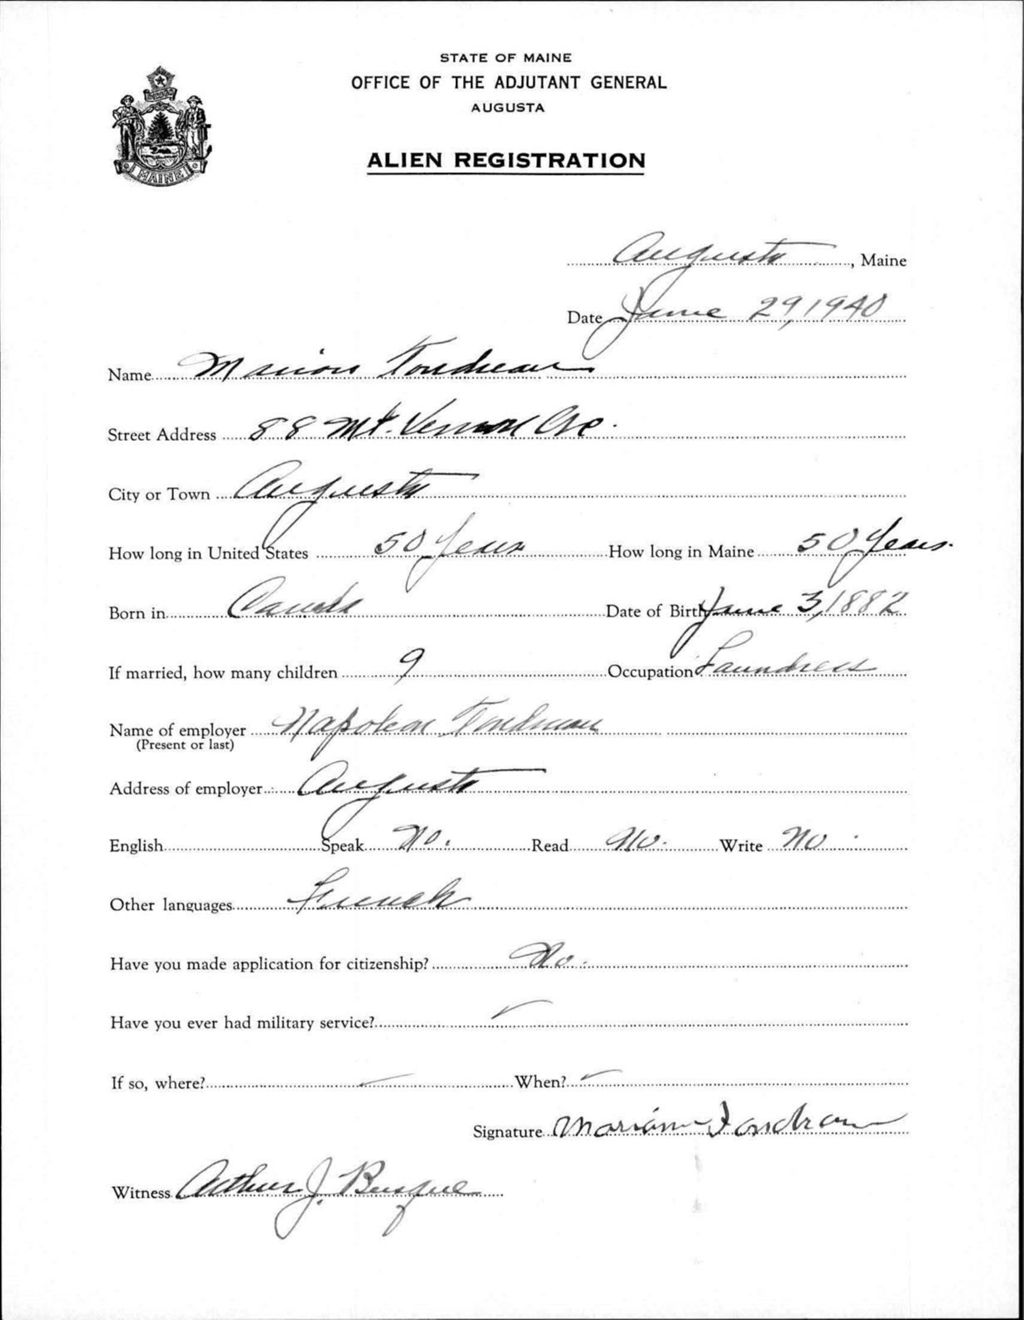 STATE OF MAINE
OFFICE OF THE ADJUTANT GENERAL
AUGUSTA
MAINE
ALIEN REGISTRATION
Augusta, Maine
Date June 29, 1940
Name Marion Fondreau
Street Address 88 Mt. Vernon Ave.
City or Town Augusta
How long in United States 50 Years How long in Maine 50 Years.
Born in Canada Date of Birth June 3, 1882
If married, how many children 9 Occupation Laundress
Name of employer Napoleon
(Present or last)
Address of employer Augusta
English Speak No. Read No. Write No.
Other languages French
Have you made application for citizenship? No.
Have you ever had military service?
If so, where? When?
Signature Marion Fondreau
Witness Arthur J.